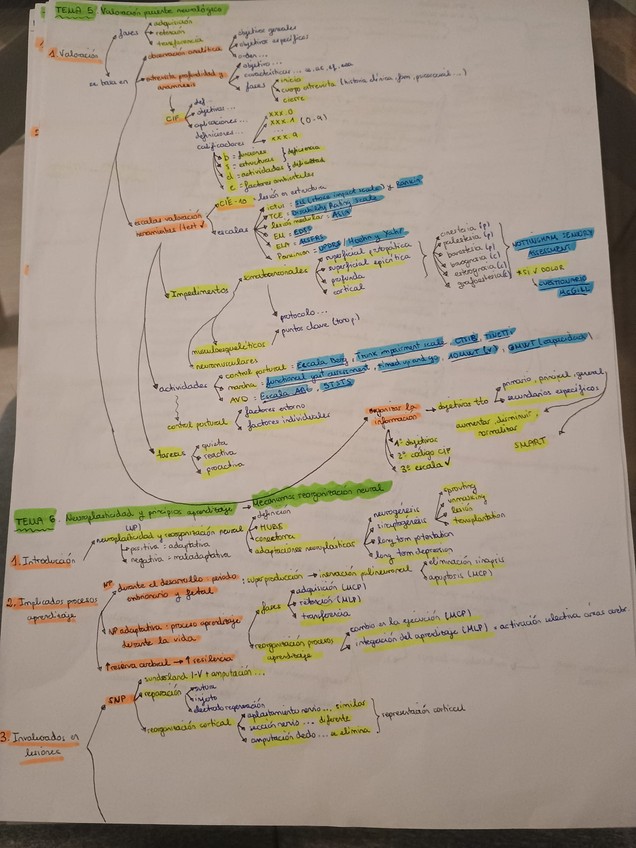 TEMA 5. Valoración paciente neurológico
1. Valoración
fases
adquisición
retención
transferencia
se basa en
observación analítica
objetivos generales
objetivos específicos
orden...
entrevista profundidad y anamnesis
objetivo...
características...
fases
inicio
cuerpo entrevista (historia clínica, fam, psicosocial...)
cierre
CIF
def...
objetivos...
aplicaciones...
definiciones...
calificadores
xxx.0
xxx.1 (0-4)
...
xxx.9
b = funciones
s = estructuras
} deficiencia
d = actividades
e = factores ambientales
escalas valoración
CIE-10 = lesión en estructura
escalas
ictus: SIS (stroke impact scale) y RANKIN
TCE: Disability Rating Scale
lesión medular: ASIA
EM: EDSS
ELA: ALSFRS
Parkinson: UPDRS / Hoehn y Yahr
Impedimentos
somatosensoriales
superficial protopática
superficial epicrítica
profunda
cortical
cinestesia (p)
palestesia (p)
barestesia (p)
barognosia (c)
estereognosia (c)
grafoestesia (c)
NOTTINGHAM SENSORY
ASSESSMENT
+ SI ✓ DOLOR
CUESTIONARIO
McGILL
protocolo...
puntos clave
musculoesqueléticos
neuromusculares
actividades
control postural: Escala Berg, Trunk impairment scale, CTSIB, TINETTI
marcha: functional gait assessment, timed up and go, 10MWT (v), 6MWT (capacidad)
AVD:
control postural
factores entorno
factores individuales
tareas
quieta
reactiva
proactiva
organizar la
información
1º objetivos
2º código CIF
3º escala ✓
objetivos tto
primario, principal, general
secundarios específicos
aumentar, disminuir,
normalizar
SMART
TEMA 6. Neuroplasticidad y principios aprendizaje → Mecanismos reorganización neural
1. Introducción
neuroplasticidad y reorganización neural (NP)
positiva = adaptativa
negativa = maladaptativa
definición
conectoma
adaptaciones neuroplásticas
neurogénesis
sinaptogénesis
long term potentation
long term depression
sprouting
unmasking
lesión
transplantation
2. Implicados procesos
aprendizaje
NP durante el desarrollo: periodo
embrionario y fetal
superproducción → inervación polineuronal
eliminación sinapsis
apoptosis (MCP)
NP adaptativa: proceso aprendizaje
durante la vida
fases
adquisición (MCP)
retención (MLP)
transferencia
reorganización procesos
aprendizaje
cambio en la ejecución (MCP)
integración del aprendizaje (MLP) + activación selectiva áreas cerebr.
↑ reserva cerebral → ↑ resiliencia
3. Involucrados en
lesiones
SNP
sunderland I-V + amputación...
reparación
sutura
injerto
reorganización cortical
aplastamiento nervio... similar
sección nervio... diferente
amputación dedo... se elimina
} representación cortical